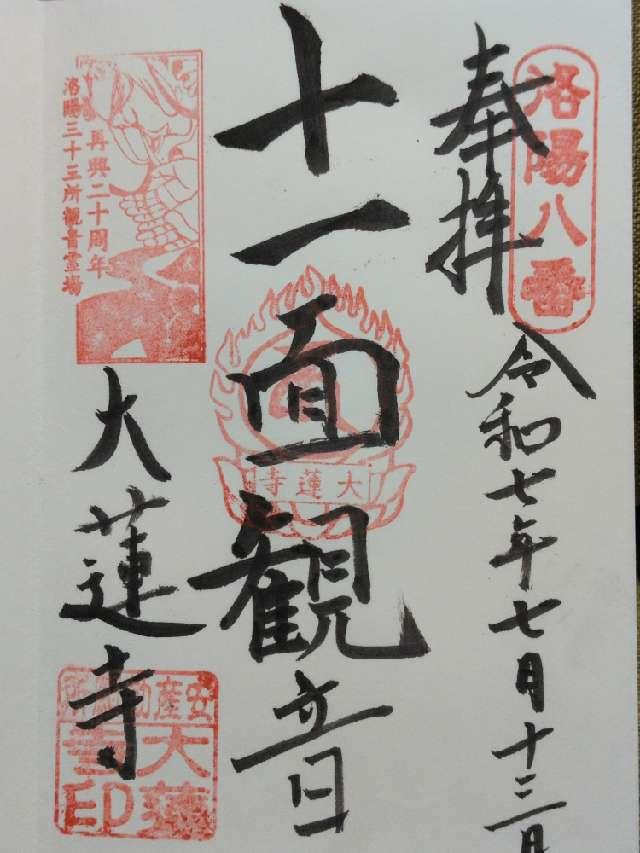 奉拝
洛陽八番
令和七年七月十三日
十一面観音
大蓮寺
大蓮寺
再興二十周年
洛陽三十三所観音霊場
安産
大蓮
寺印